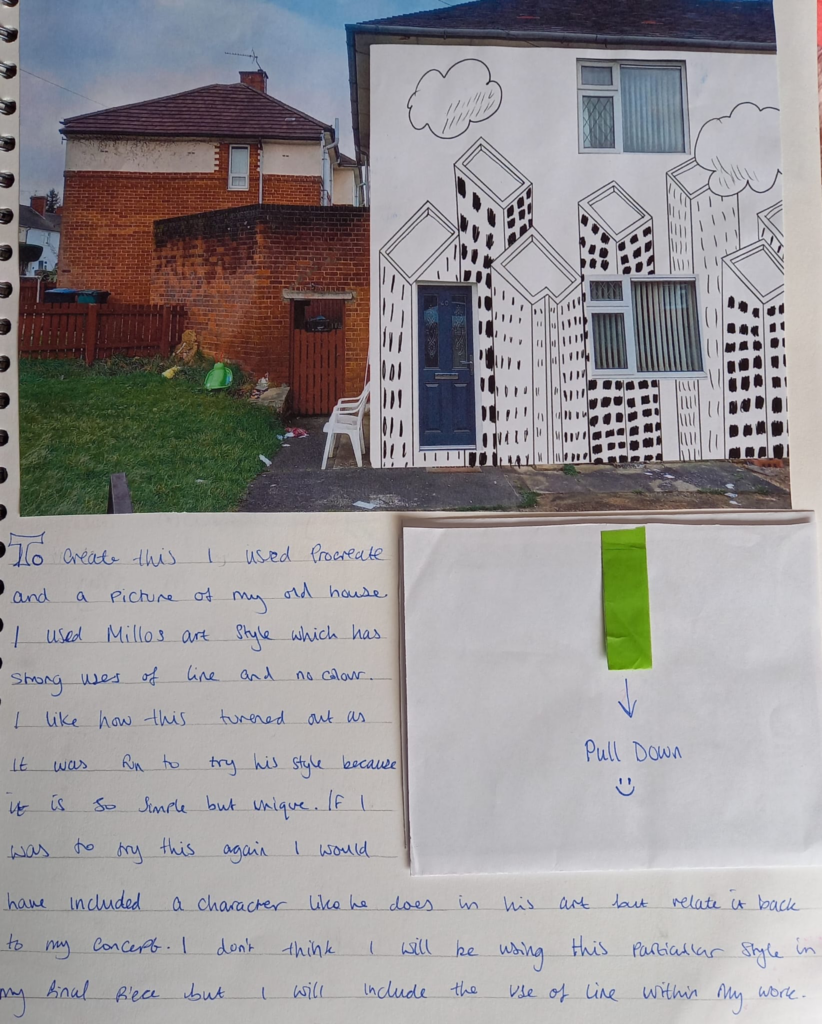 To create this I used Procreate
and a picture of my old house.
I used Millos art style which has
strong uses of line and no colour.
I like how this turened out as
it was fun to try his style because
it is so simple but unique. If I
was to try this again I would
have included a character like he does in his art but relate it back
to my concept. I don't think I will be using this particular style in
my final piece but I will include the use of line within my work.
Pull Down